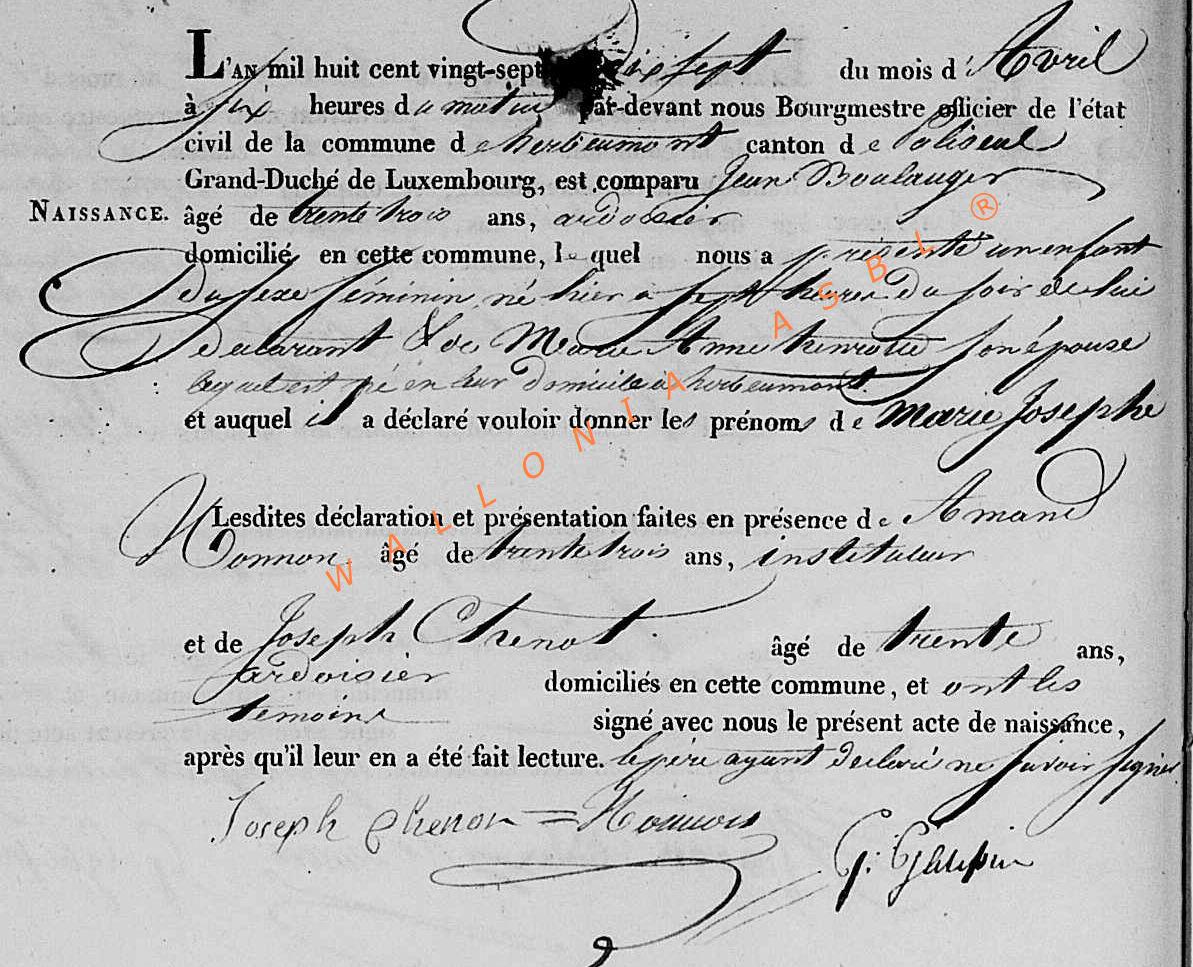 L'AN mil huit cent vingt-sept dix sept du mois d'Avril
à six heures du matin par-devant nous Bourgmestre officier de l'état
civil de la commune de herbeumont canton de Paliseul
Grand-Duché de Luxembourg, est comparu Jean Boulanger
NAISSANCE.
âgé de trente trois ans, ardoisier
domicilié en cette commune, le quel nous a présenté un enfant
du sexe féminin né hier à sept heures du soir de lui
déclarant & de Marie Anne henrotte son épouse
lequel est né en leur domicile à herbeumont
et auquel il a déclaré vouloir donner les prénoms de Marie Josephe
Lesdites déclaration et présentation faites en présence de Amand
Honnon âgé de trente trois ans, instituteur
et de Joseph Chenot âgé de trente ans,
ardoisier domiciliés en cette commune, et ont les
temoins signé avec nous le présent acte de naissance,
après qu'il leur en a été fait lecture. le père ayant déclaré ne savoir signer
Joseph Chenon = 
WALLONIA ASBL ®